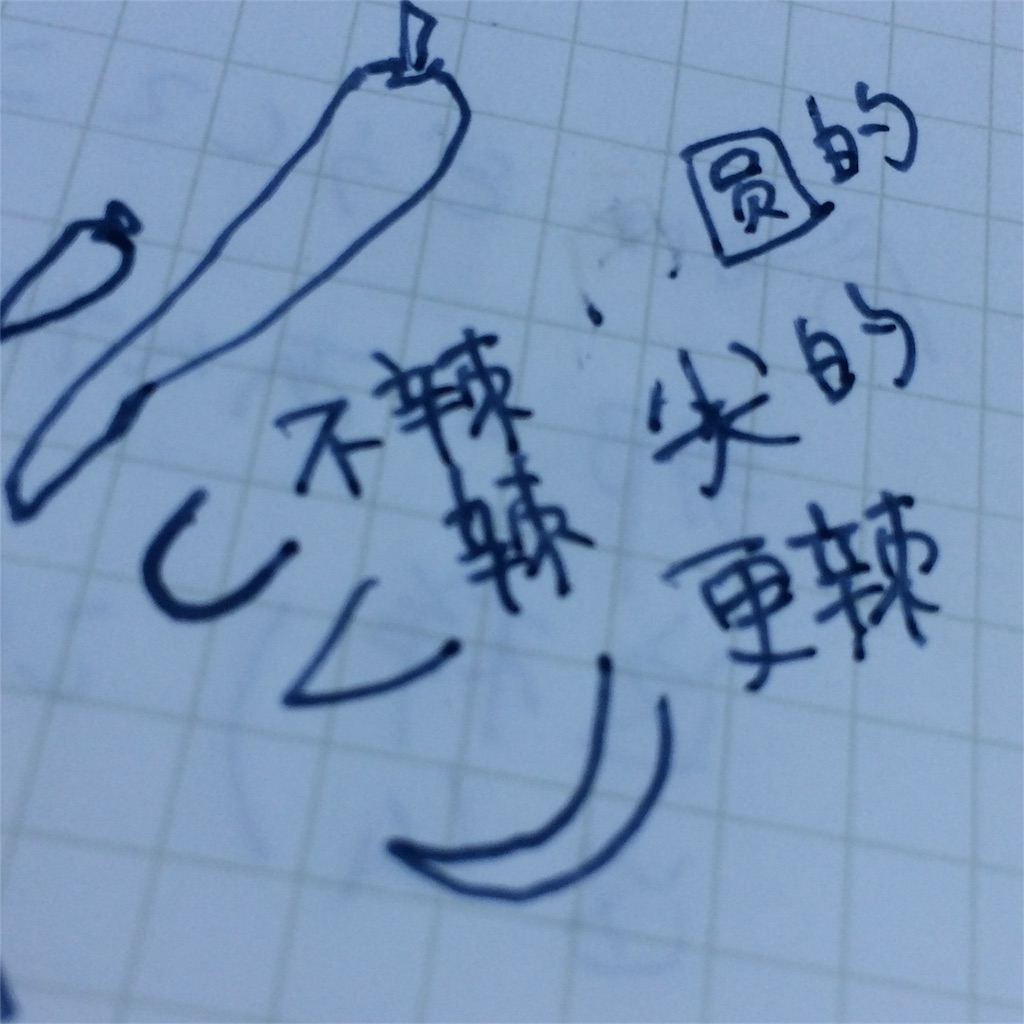 圆的
尖的
更辣
不辣
辣